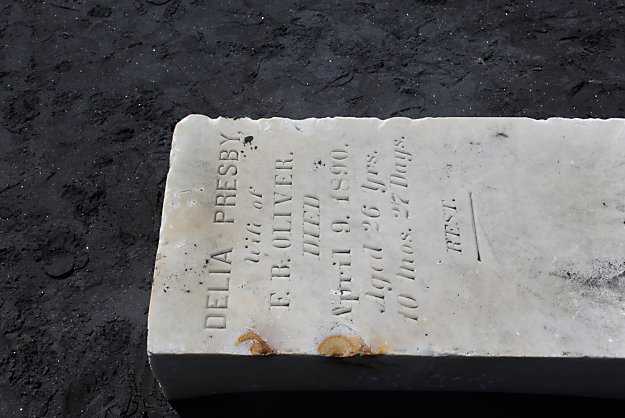 DELIA PRESBY,
wife of
F. B. OLIVER.
DIED
April 9, 1890.
Aged 26 Yrs.
10 mos. 27 Days.
REST.